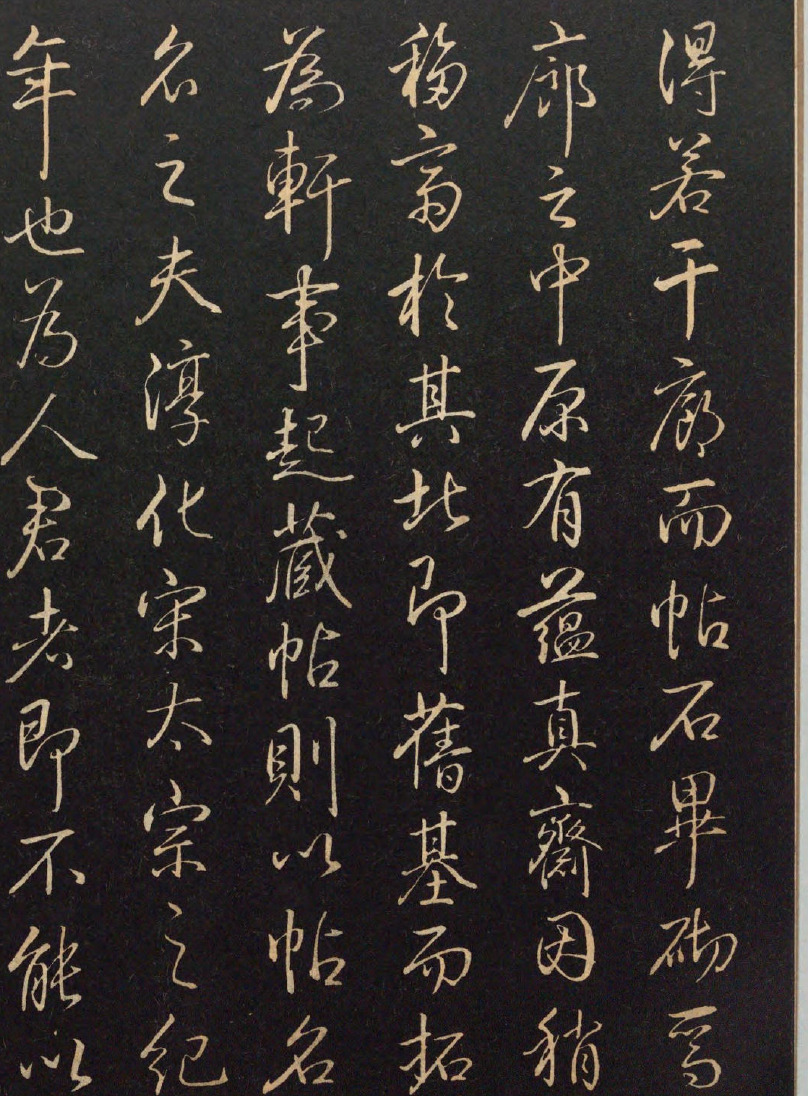 得若干廊而帖石畢砌焉
廊之中原有蘊真齋因稍
移齋於其北即舊基而拓
為軒事起藏帖則以帖名
名之夫淳化宋太宗之紀
年也為人君者即不能以